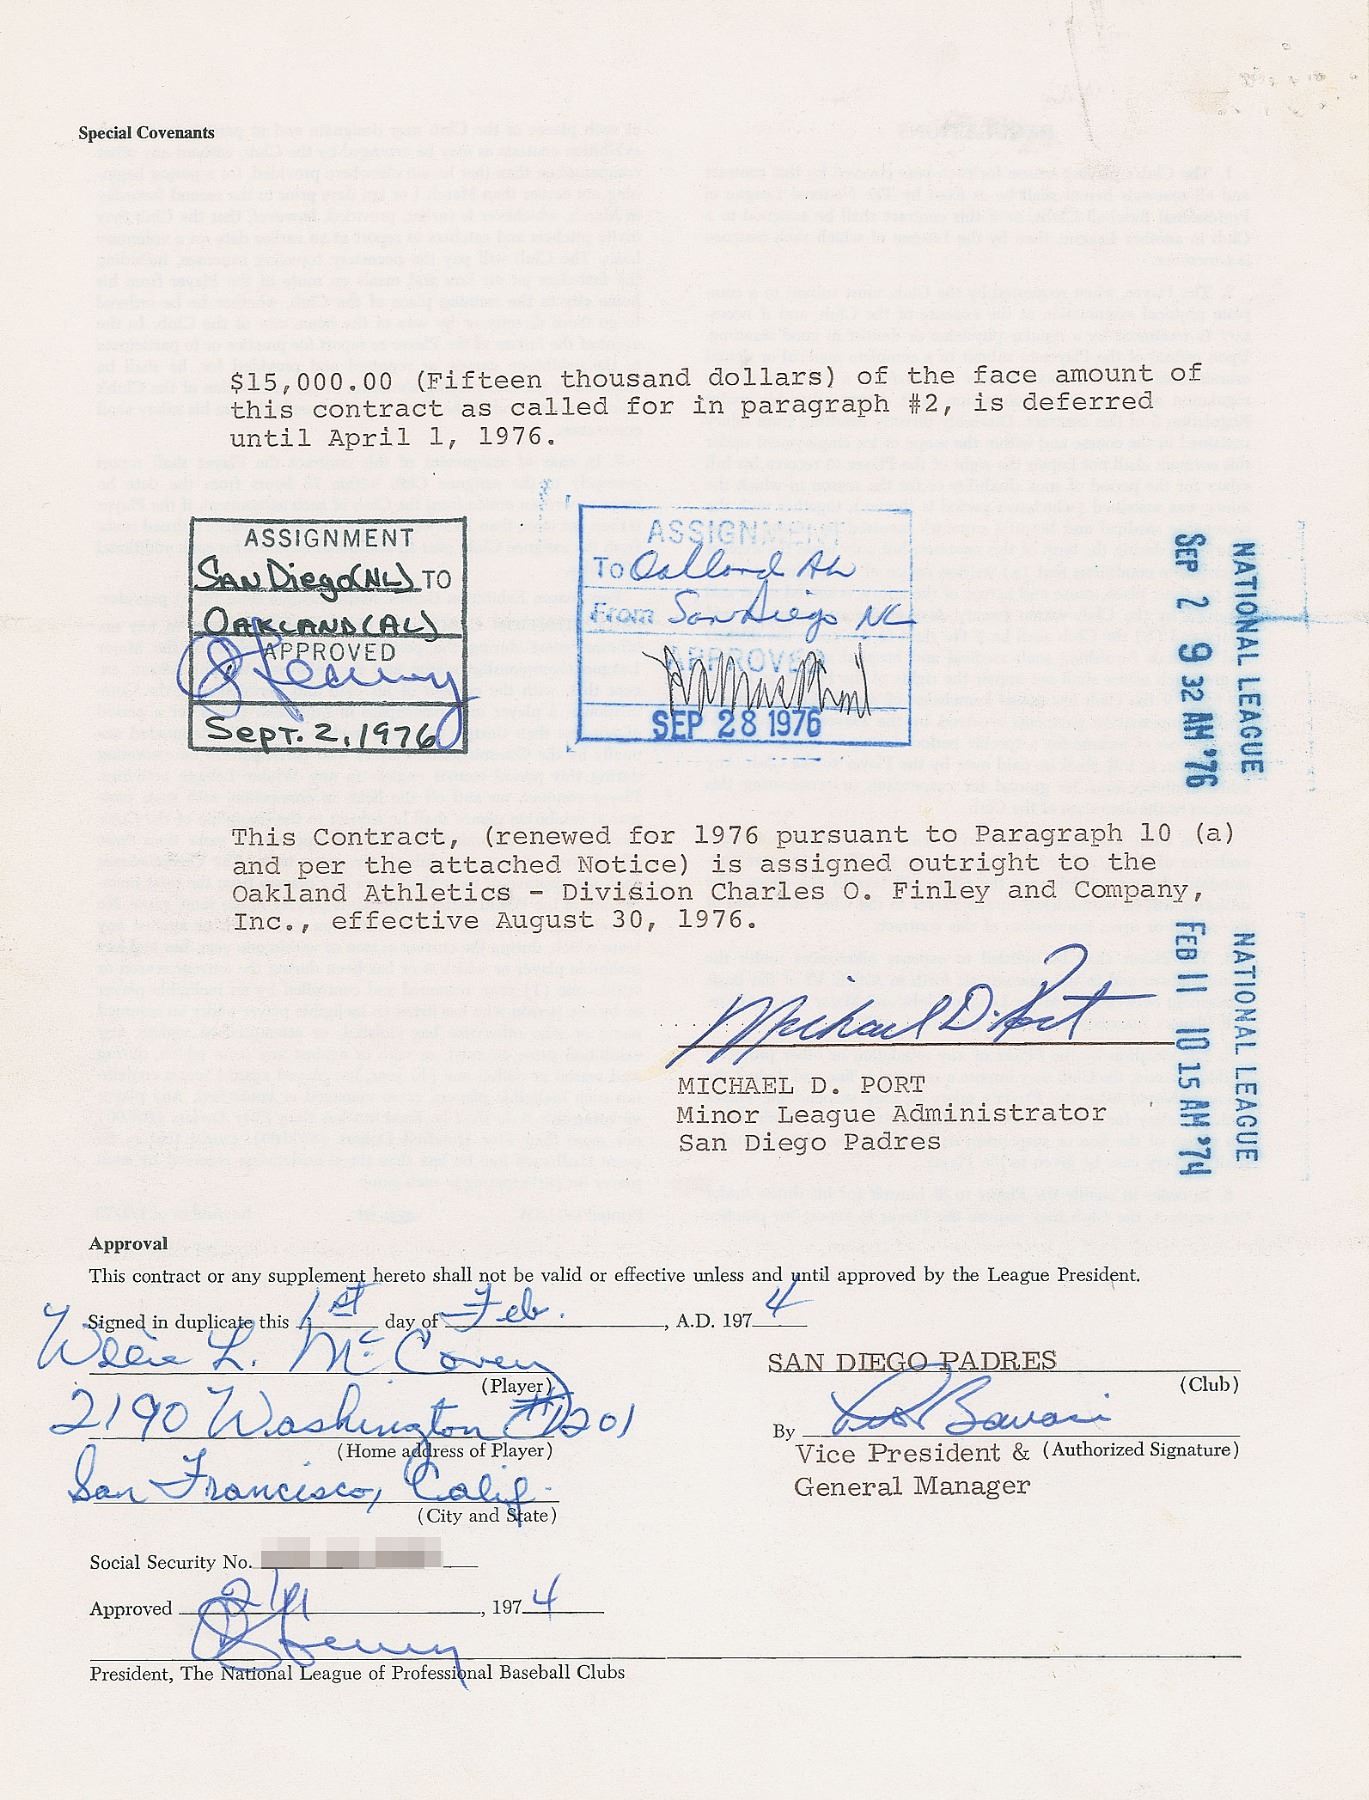 Special Covenants
$15,000.00 (Fifteen thousand dollars) of the face amount of
this contract as called for in paragraph #2, is deferred
until April 1, 1976.
ASSIGNMENT
San Diego (NL) TO
Oakland (AL)
APPROVED
Sept. 2, 1976
ASSIGNMENT
To Oakland AL
From San Diego NL
APPROVED
SEP 28 1976
NATIONAL LEAGUE
SEP 2 9 32 AM '76
This Contract, (renewed for 1976 pursuant to Paragraph 10 (a)
and per the attached Notice) is assigned outright to the
Oakland Athletics - Division Charles O. Finley and Company,
Inc., effective August 30, 1976.
NATIONAL LEAGUE
FEB 11 10 15 AM '74
Michael D. Port
MICHAEL D. PORT
Minor League Administrator
San Diego Padres
Approval
This contract or any supplement hereto shall not be valid or effective unless and until approved by the League President.
Signed in duplicate this 1st day of Feb. , A.D. 197 4
Willie L. McCovey
(Player)
2190 Washington #1201
(Home address of Player)
San Francisco, Calif.
(City and State)
SAN DIEGO PADRES
(Club)
By Bavasi
Vice President & (Authorized Signature)
General Manager
Social Security No.
Approved 2/11 , 197 4
President, The National League of Professional Baseball Clubs